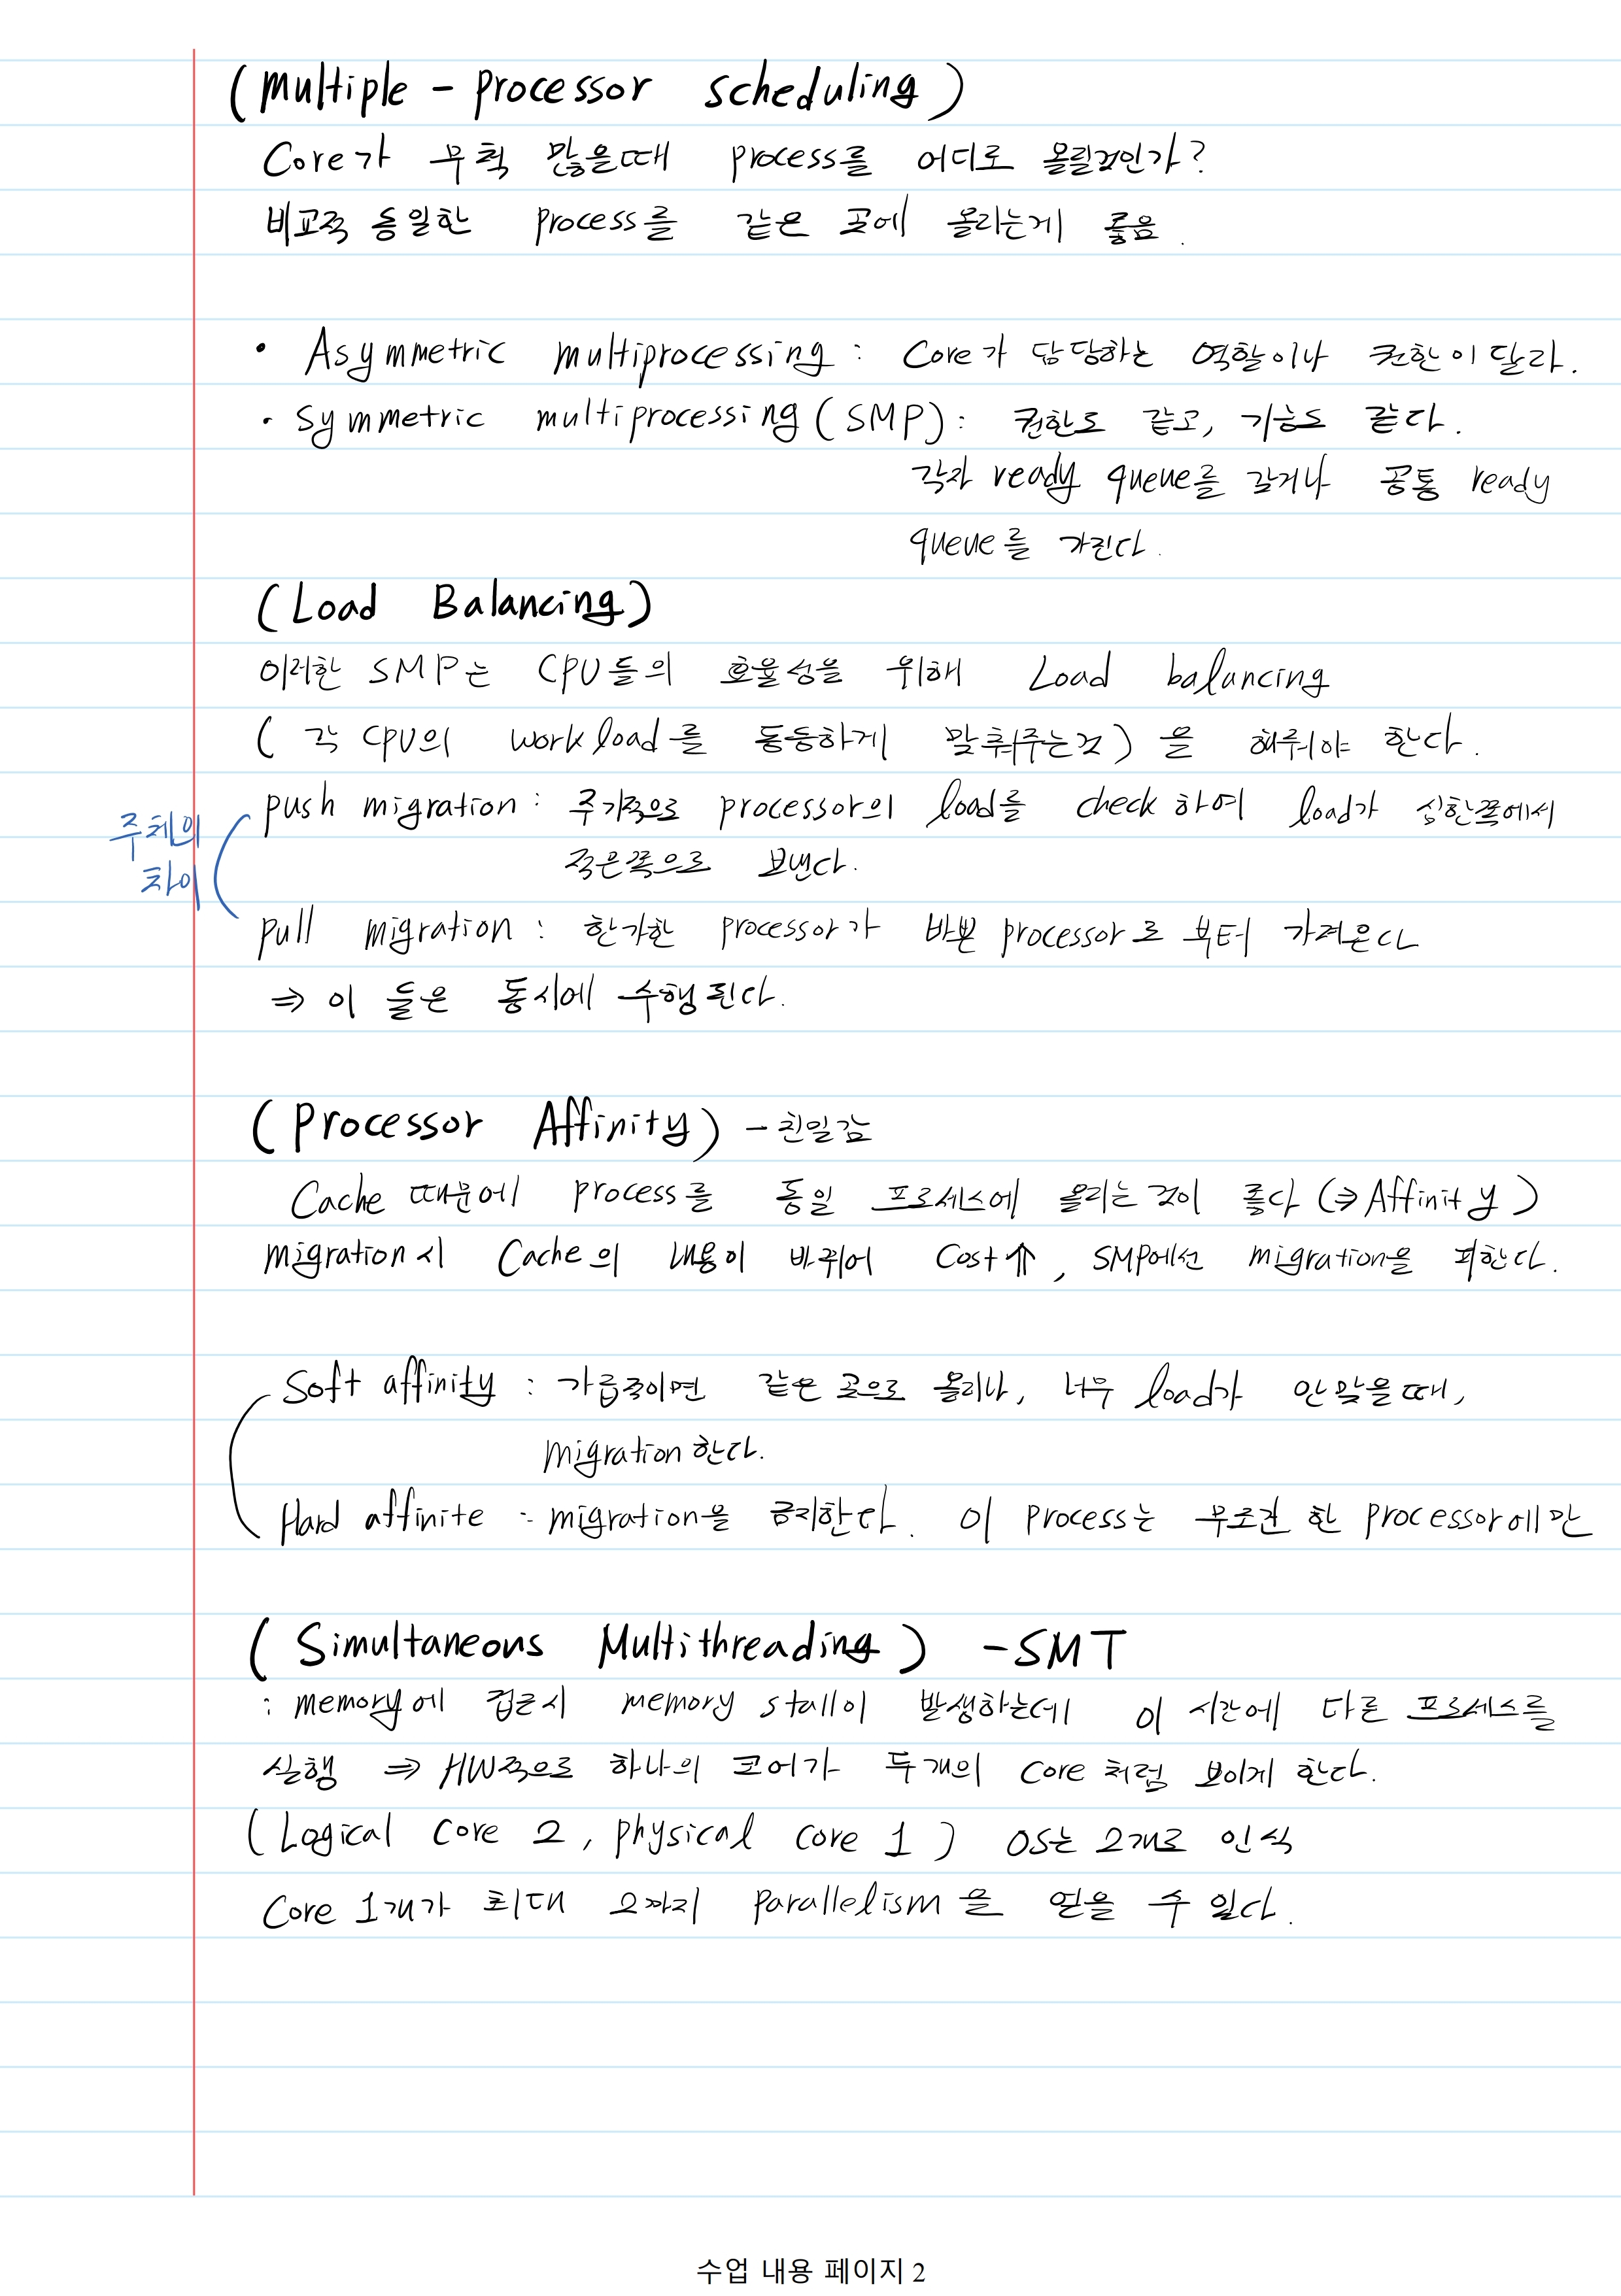 (Multiple - processor scheduling)
Core가 무척 많을때 process를 어디로 올릴것인가?
비교적 동일한 process를 같은 곳에 올리는게 좋음.
· Asymmetric multiprocessing : Core가 담당하는 역할이나 권한이 달라.
· Symmetric multiprocessing (SMP) : 권한도 같고, 기능도 같다.
각자 ready queue를 갖거나 공통 ready
queue를 가진다.
(Load Balancing)
이러한 SMP는 CPU들의 효율성을 위해 Load balancing
( 각 CPU의 workload를 동등하게 맞춰주는것 ) 을 해줘야 한다.
push migration : 주기적으로 processor의 load를 check 하여 load가 심한쪽에서
적은쪽으로 보낸다.
주체의
차이
pull migration : 한가한 processor가 바쁜 processor로 부터 가져온다
⇒ 이 들은 동시에 수행된다.
(Processor Affinity) - 친밀감
Cache 때문에 process를 동일 프로세스에 올리는 것이 좋다 (⇒ Affinity)
migration시 Cache의 내용이 바뀌어 Cost⇑, SMP에선 migration을 피한다.
Soft affinity : 가급적이면 같은 곳으로 올리나, 너무 load가 안 맞을때,
migration한다.
Hard affinite : migration을 금지한다. 이 process는 무조건 한 processor에만
( Simultaneous Multithreading ) - SMT
: memory에 접근시 memory stall이 발생하는데 이 시간에 다른 프로세스를
실행 ⇒ HW적으로 하나의 코어가 두개의 core 처럼 보이게 한다.
(Logical core 2, physical core 1) OS는 2개로 인식
Core 1개가 최대 2까지 parallelism을 얻을 수 있다.
수업 내용 페이지 2